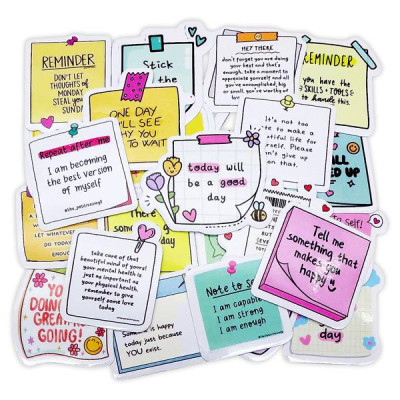 REMINDER
DON'T LET
THOUGHTS OF
MONDAY
STEAL YOUR
SUNDAY
Stick
the
HEY THERE
don't forget you are doing
your best and that's
enough. take a moment to
appreciate yourself and all
you've accomplished, big
or small, you're worthy of
REMINDER
you have the
SKILLS + TOOLS
to handle this.
ONE DAY
YOU'LL SEE
WHY YOU
HAD TO WAIT
It's not too
late to make a
beautiful life for
yourself. Please
don't give up
on that.
Repeat after me
I am becoming
the best version
of myself
today will
be a good
day
ALL
UP
There
LET WHATEVER
DO TODAY
ENOUGH
take care of that
beautiful mind of yours!
your mental health is
just as important as
your physical health.
remember to give
yourself some love
today
Tell me
something that
makes you
happy
to self!
Note to Self
I am capable
I am strong
I am enough
YOU
DOING
GREAT
GOING!
is happy
today just because
YOU exist.
day